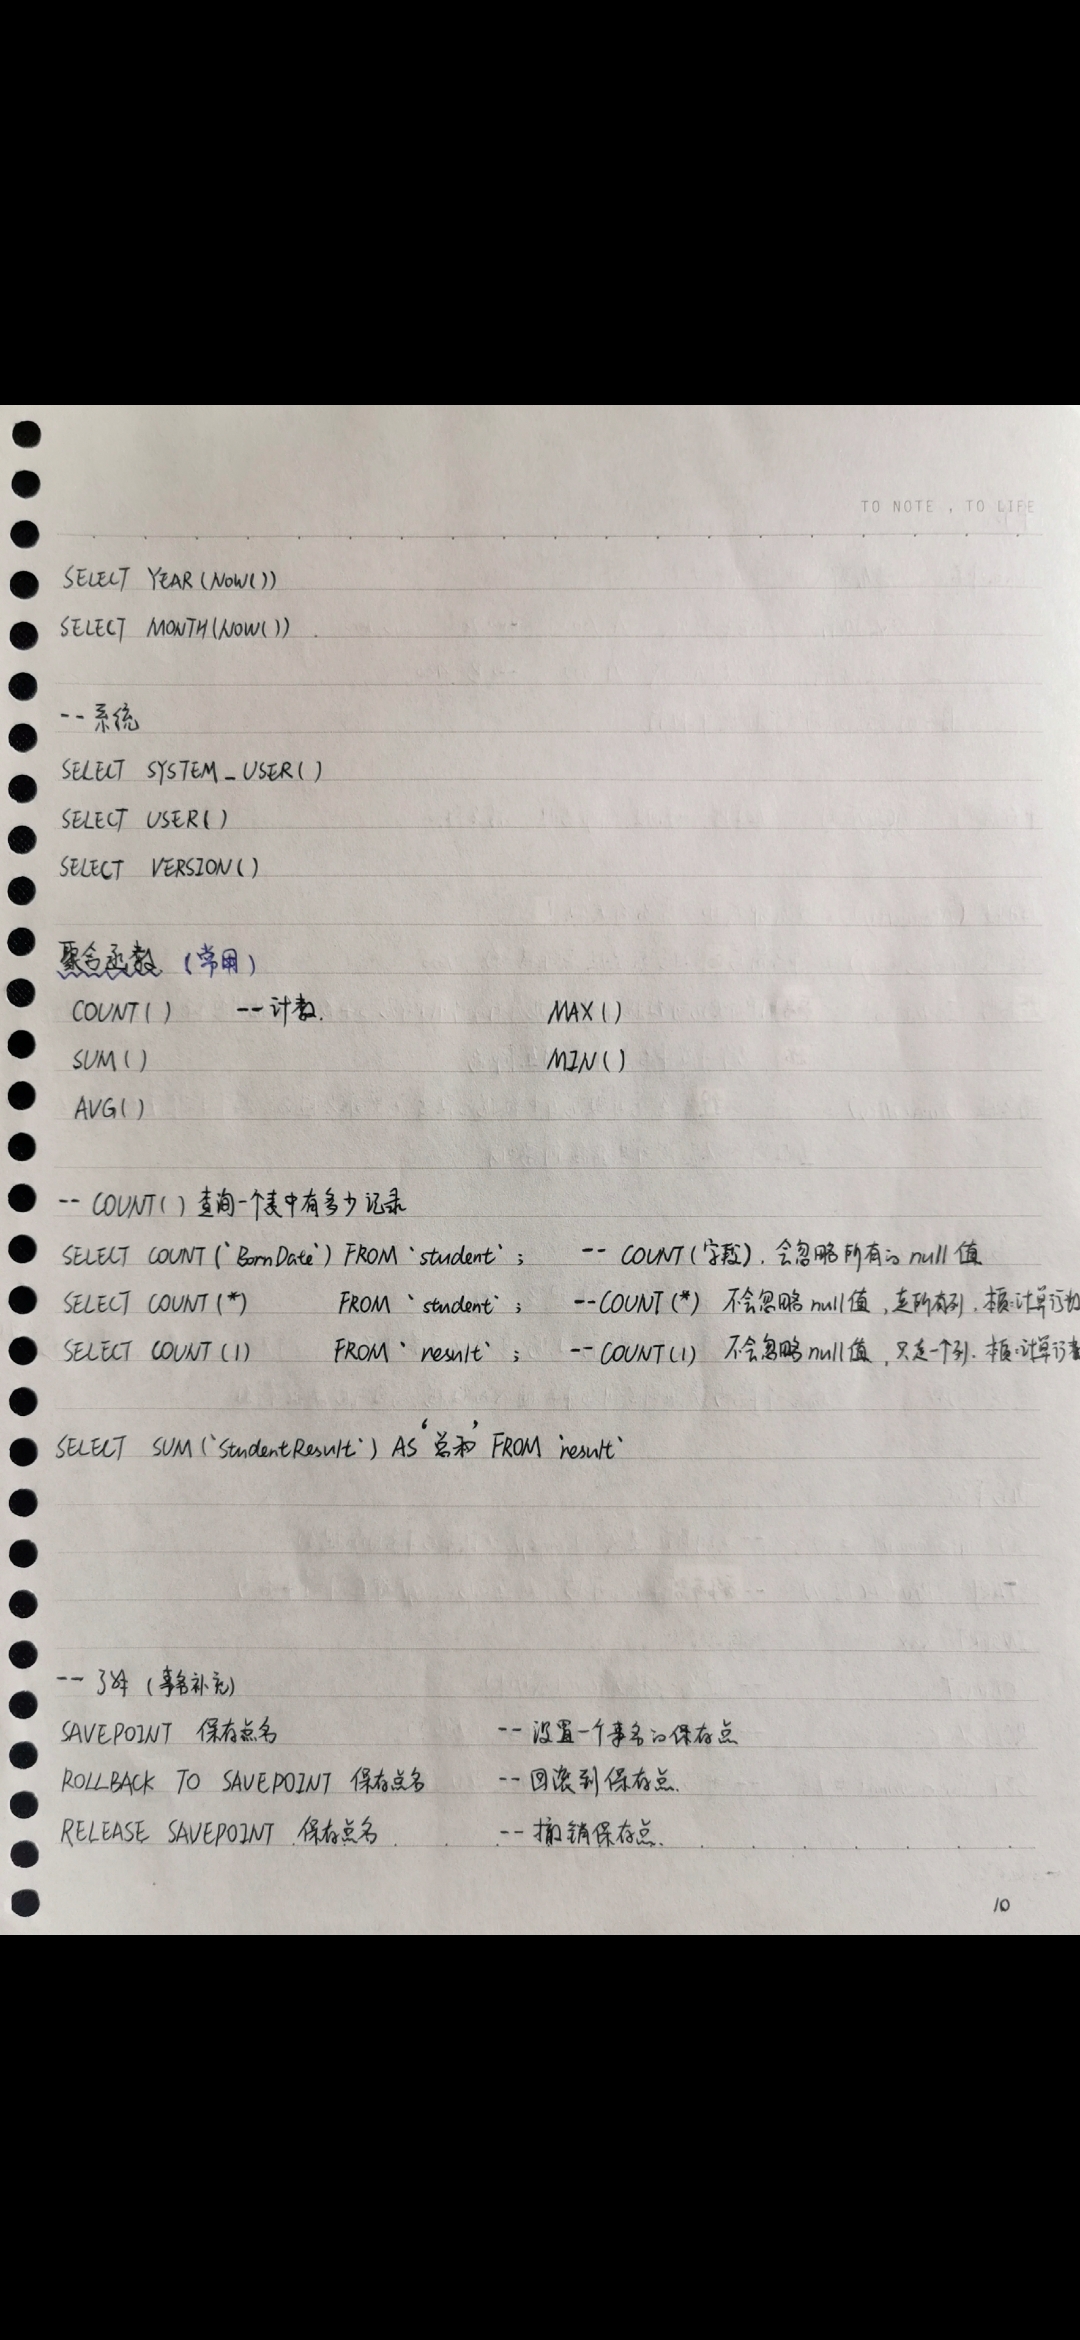 TO NOTE , TO LIFE
SELECT YEAR(NOW())
SELECT MONTH(NOW())
--系统
SELECT SYSTEM_USER()
SELECT USER()
SELECT VERSION()
聚合函数 (常用)
COUNT() --计数. MAX()
SUM() MIN()
AVG()
-- COUNT() 查询一个表中有多少记录
SELECT COUNT(`BornDate`) FROM `student`; -- COUNT(字段), 会忽略所有的 null 值
SELECT COUNT(*) FROM `student`; --COUNT(*) 不会忽略 null值, 走所有列, 本质:计算行数
SELECT COUNT(1) FROM `result`; --COUNT(1) 不会忽略 null值, 只走一个列. 本质:计算行数
SELECT SUM(`StudentResult`) AS '总和' FROM `result`
-- 了解 (事务补充)
SAVEPOINT 保存点名 -- 设置一个事务的保存点
ROLLBACK TO SAVEPOINT 保存点名 -- 回滚到保存点.
RELEASE SAVEPOINT 保存点名 -- 撤销保存点.
10